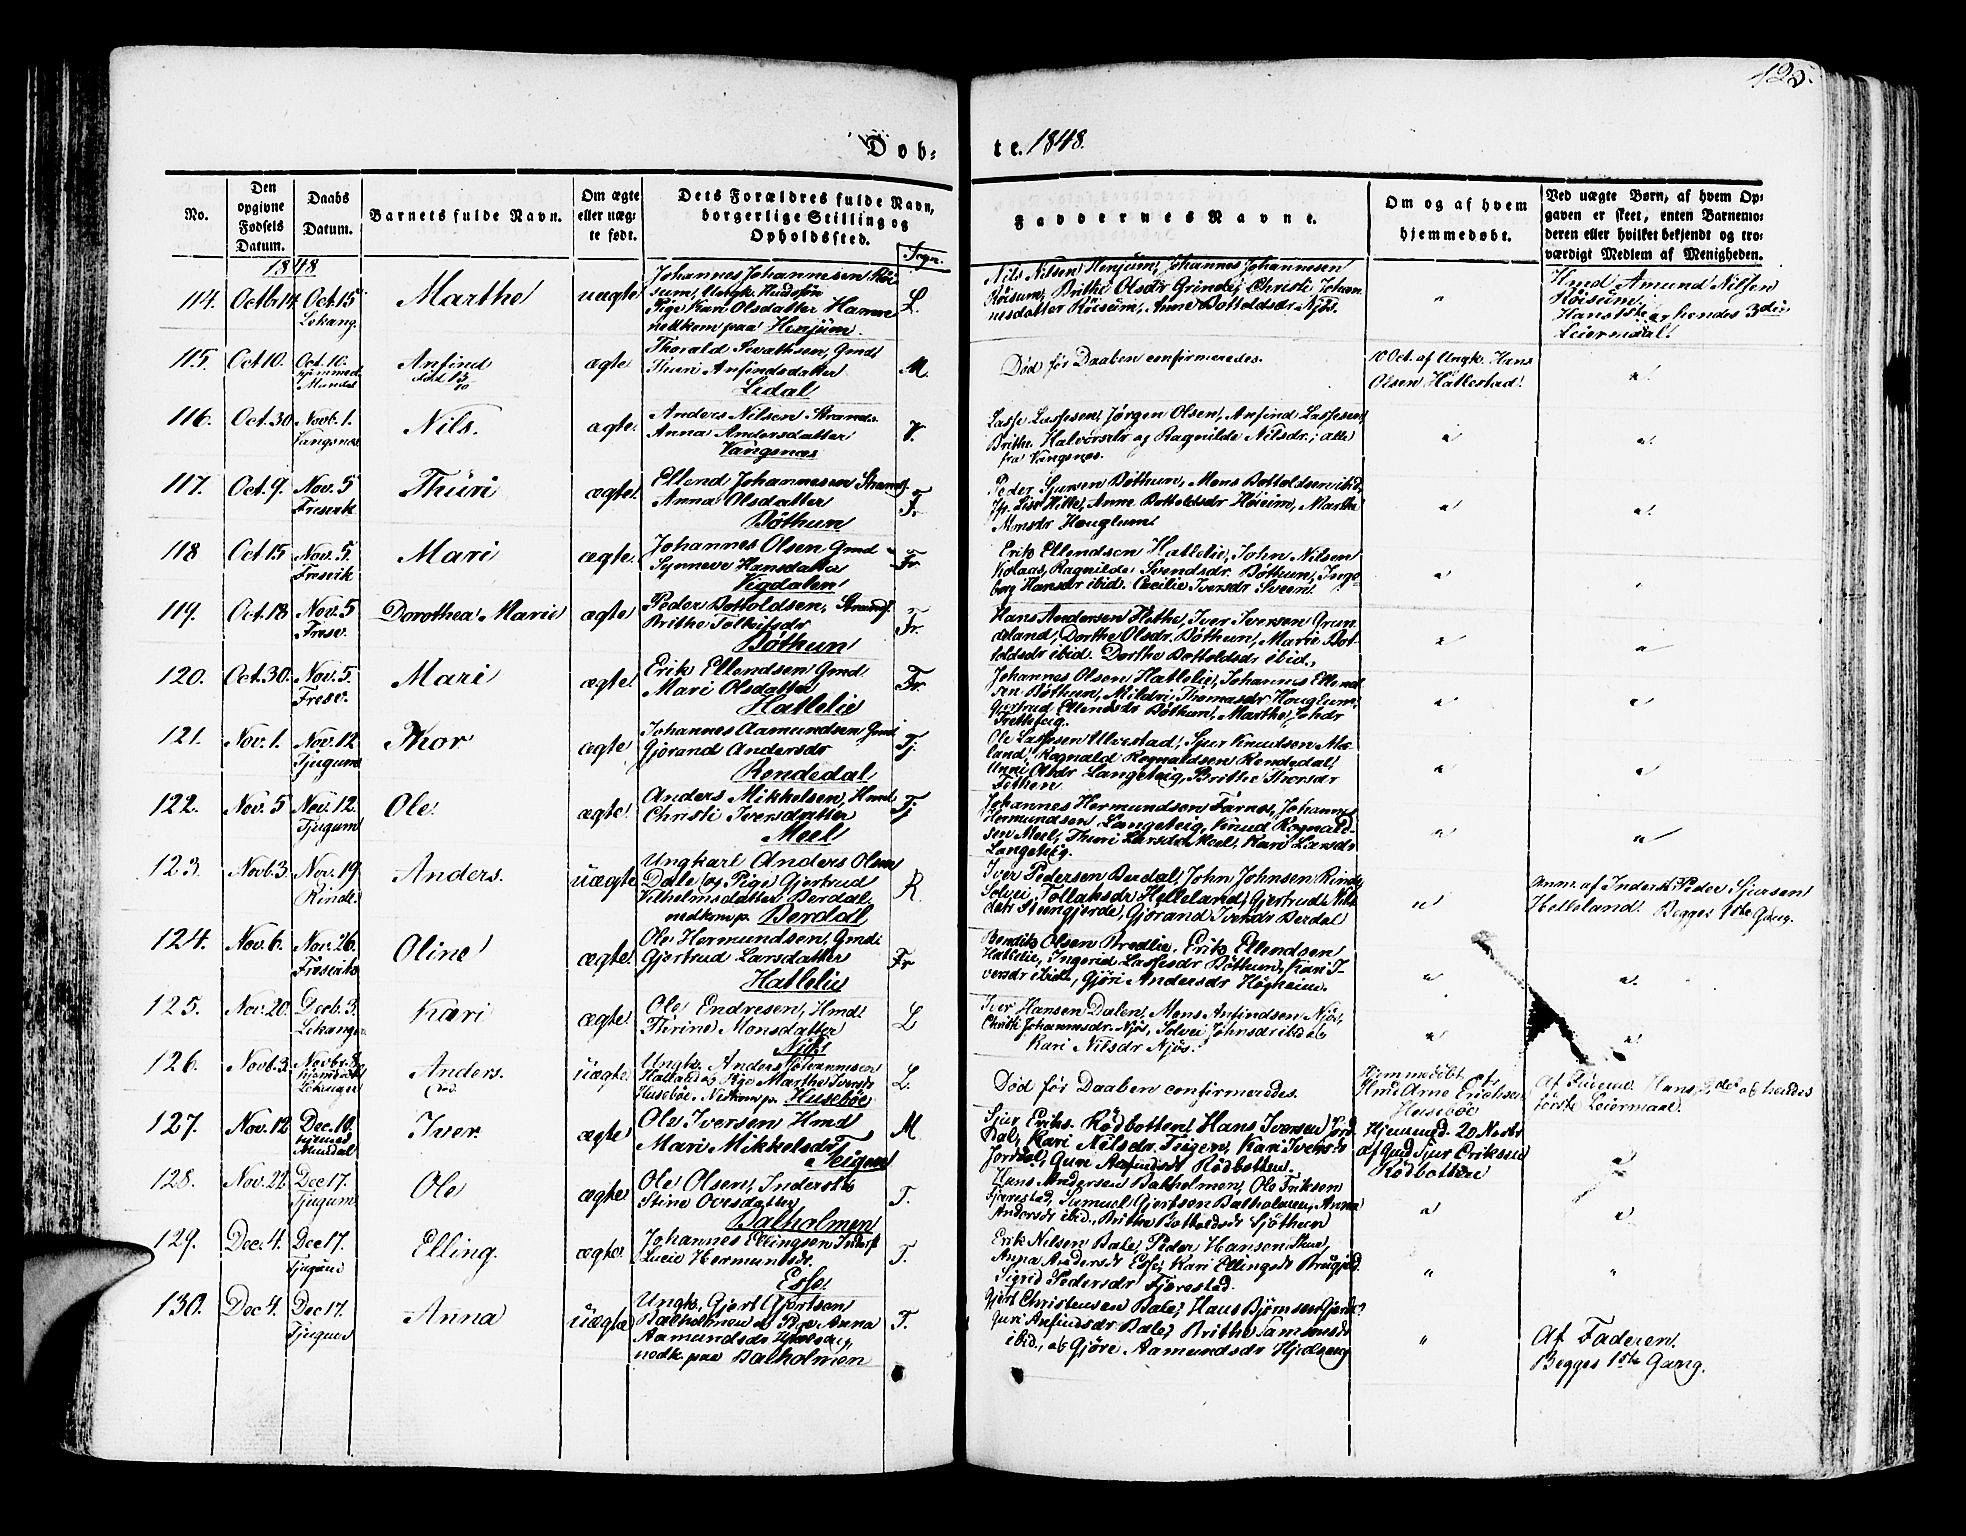 125.
Døb-
te. 1848.
No.
Den opgivne Fødsels Datum.
Daabs Datum.
Barnets fulde Navn.
Om ægte eller uægte født.
Dets Forældres fulde Navn, borgerlige Stilling og Opholdssted.
Sogn.
Faddernes Navne.
Om og af hvem hjemmedøbt.
Ved uægte Børn, af hvem Opgaven er skeet, enten Barnemoderen eller hvilket bekjendt og troværdigt Medlem af Menigheden.
1848
114. Octb. 14 Oct. 15 Lekang. Marthe uægte
Johannes Johannesen Röi
sum, Ungk. Huusfön
Pige Kari Olsdatter Hamre
nedkom paa Henjum. L.
Nils Nilsen Henjum, Johannes Johannesen
Röisum, Brithe Olsdr Grinde, Christi Johan
nesdatter Röisum, Anne Bottoldsdr Njøs.
"
Hmd Amund Nilsen
Röisum.
Hans 1ste og hendes 3die
Leiermaal.
115. Oct. 10. Oct. 10. hjemmed. Mundal Anfind død 13/10 ægte
Thorald Sivathsen, Gmd
Thuri Anfindsdatter
Lidal M.
Død før Daaben confirmeredes.
10 Oct. af Ungk. Hans
Olsen Hatlestad. "
116. Oct. 30 Novb. 1. Vangsnæs Nils. ægte
Anders Nilsen Strands.
Anna Andersdatter
Vangsnæs V.
Lasse Lassesen, Jørgen Olsen, Anfind Lassesen,
Brithe Halvorsdr og Ragnilde Nilsdr; alle
fra Vangsnes. " "
117. Oct. 9. Nov. 5 Fresvik Thuri ægte
Ellend Johannesen Strands.
Anna Olsdatter
Böthun Fr.
Peder Sjursen Böthun, Mons Bottoldsen ibid,
Jfr. Lise Hille, Anne Bottoldsdr Höiem, Marthe
Monsdr Houglum " "
118 Oct. 15 Nov. 5. Fresvik Mari ægte
Johannes Olsen Gmd
Synneve Hansdatter
Vigdalen Fr.
Erik Ellendsen Hatlelie, John Nilsen
Kolaas, Ragnilde Svendsdr. Böthun, Inge
borg Hansdr ibid. Cecilie Iversdr Sveen. "
119. Oct. 18 Nov. 5 Fresv. Dorothea Marie ægte
Peder Bottoldsen, Strands.
Brithe Tolleifsdr
Böthun Fr.
Hans Andersen Hethe, Iver Iversen Grun
deland, Dorthe Olsdr. Böthun, Marie Bot
toldsdr ibid. Dorthe Bottoldsdr ibid. " "
120. Oct. 30. Nov. 5. Fresv. Mari ægte
Erik Ellendsen Gmd
Mari Olsdatter
Hatlelie Fr.
Johannes Olsen Hatlelie, Johannes Ellend
sen Böthun, Mildri Thomasdr Houglum,
Gjertrud Ellendsdr Böthun, Marthe Johdr
Tretteteig. " "
121. Nov. 1. Nov. 12 Tjugum Thor ægte
Johannes Aamundsen Gmd
Gjörand Andersdr
Rendedal Tj.
Ole Lassesen Ulvestad, Sjur Knudsen Me
land, Rognald Rognaldsen Rendedal,
Unni Olsdr Langeteig, Brithe Thorsdr
Fetten. " "
122. Nov. 5 Nov. 12. Tjugum Ole ægte
Anders Mikkelsen, Hmd
Christi Iversdatter
Meel Tj.
Johannes Hermundsen Farnes, Johannes
Hermundsen Langeteig, Knud Rognald
sen Meel, Thuri Larsdr Meel, Kari Larsdr
Langeteig. " "
123. Novb. 3 Nov. 19. Rinde Anders. uægte
Ungkarl Anders Olsen
Dale og Pige Gjertrud
Vilhelmsdatter Berdal.
nedkom p. Berdal R.
Iver Pedersen Berdal, John Johnsen Rinde
Solvei Tollaksdr Helleland, Gjertrud Nils
datr Stengjerde, Gjörand Iversdr Berdal "
Anm. af Inderst Peder Sjursen
Helleland. Begges 1ste Gang.
124. Nov. 6. Nov. 26. Fresvik Oline ægte
Ole Hermundsen, Gmd
Gjertrud Larsdatter
Hatlelie Fr
Bendik Olsen Bredlie, Erik Ellendsen
Hatlelie, Ingerid Lassesdr Böthun, Kari I
versdr ibid, Gjöri Andersdr Högheim. " "
125. Nov. 20. Decb. 3. Lekanger Kari ægte
Ole Endresen, Hmd
Thrine Monsdatter
Njøs L
Iver Hansen Dalen, Mons Anfindsen Njøs,
Christi Johannesdr. Njøs, Solvei Johnsdr ibid og
Kari Nilsdr Njøs. " "
126. Novb. 3. Lekanger Anders. død. uægte
Ungk. Anders Johannesen
Hatland og Pige Marthe Iversdr
Husebøe. Nedkom p. Husebøe L.
Død før Daaben confirmeredes.
Hjemmedöbt
Hmd Arne Erichsen
Husebøe
Af Faderne. Hans 2det og hendes
første Leiermaal.
127. Nov. 12 Dec. 10. hjemmed Mundal Iver. ægte
Ole Iversen Hmd
Mari Mikkelsdr
Teigen M
Sjur Eriks. Rödbotten, Hans Iversen Jord
dal, Kari Nilsdr Teigen, Kari Iversdr
Jordal, Guri Anfindsdr Rödbotten.
Hjemmed. 20 Novbr
af Gmd Sjur Eriksen
Rödbotten "
128. Nov. 22. Dec. 17. Tjugum Ole ægte
Ole Olsen, Inderste
Stine Ovesdatter
Balholmen T.
Hans Andersen Balholmen, Ole Eriksen
Fjærestad, Samuel Gjertsen Balholmen, Anna
Andersdr ibid., Brithe Bottoldsdr Sjöthun " "
129. Dec. 4. Dec 17. Tjugum Elling. ægte
Johannes Ellingsen Inderst
Lucie Hermundsdr.
Esse T.
Erik Nilsen Bale, Peder Hansen Skue,
Anna Andersdr Esse, Kari Ellingsdr Breigjul.
Sigrid Pedersdr Fjærestad. " "
130. Dec 4. Dec 17. Tjugum Anna uægte
Ungk. Gjert Gjertsen
Balholmen og Pige Anna
Aamundsdr Hjelseng
nedk. paa Balholmen T.
Gjert Christensen Bale, Hans Björnsen Gjerde
Guri Anfindsdr Bale, Brithe Samsonsdr
ibid., og Gjöre Aamundsdr Hjelseng "
Af Faderen.
Begges 1ste Gang.